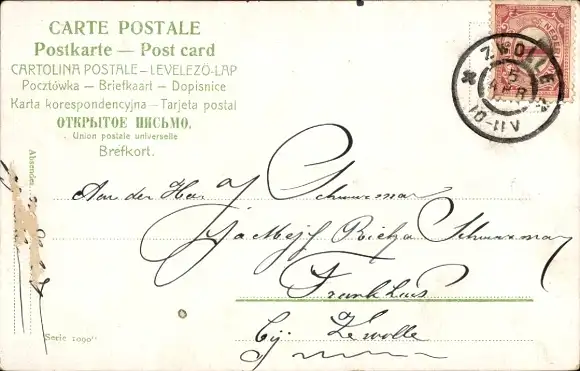 CARTE POSTALE
Postkarte — Post card
CARTOLINA POSTALE – LEVELEZÖ-LAP
Pocztówka – Briefkaart – Dopisnice
Karta korespondencyjna – Tarjeta postal
ОТКРЫТОЕ ПИСЬМО.
Union postale universelle
Brefkort.
ZWOLLE
5 APR
10-11V
Absender
Aan den Heer J Schuurman
Ja Mejf Rieka Schuurman
Frankhuis
bij Zwolle
Serie 1090